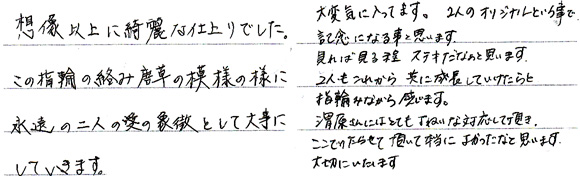 想像以上に綺麗な仕上りでした。
この指輪の絡み唐草の模様の様に
永遠の二人の愛の象徴として大事に
していきます。
大変気に入ってます。 2人のオリジナルという事で
記念になる事と思います
見れば見る程 ステキだなぁと思います。
2人もこれから 共に成長していけたらと
指輪みながら感じます。
澤原さんにはとてもていねいな対応して頂き、
ここでつくらせて頂いて本当に よかったなと思います。
大切にいたします